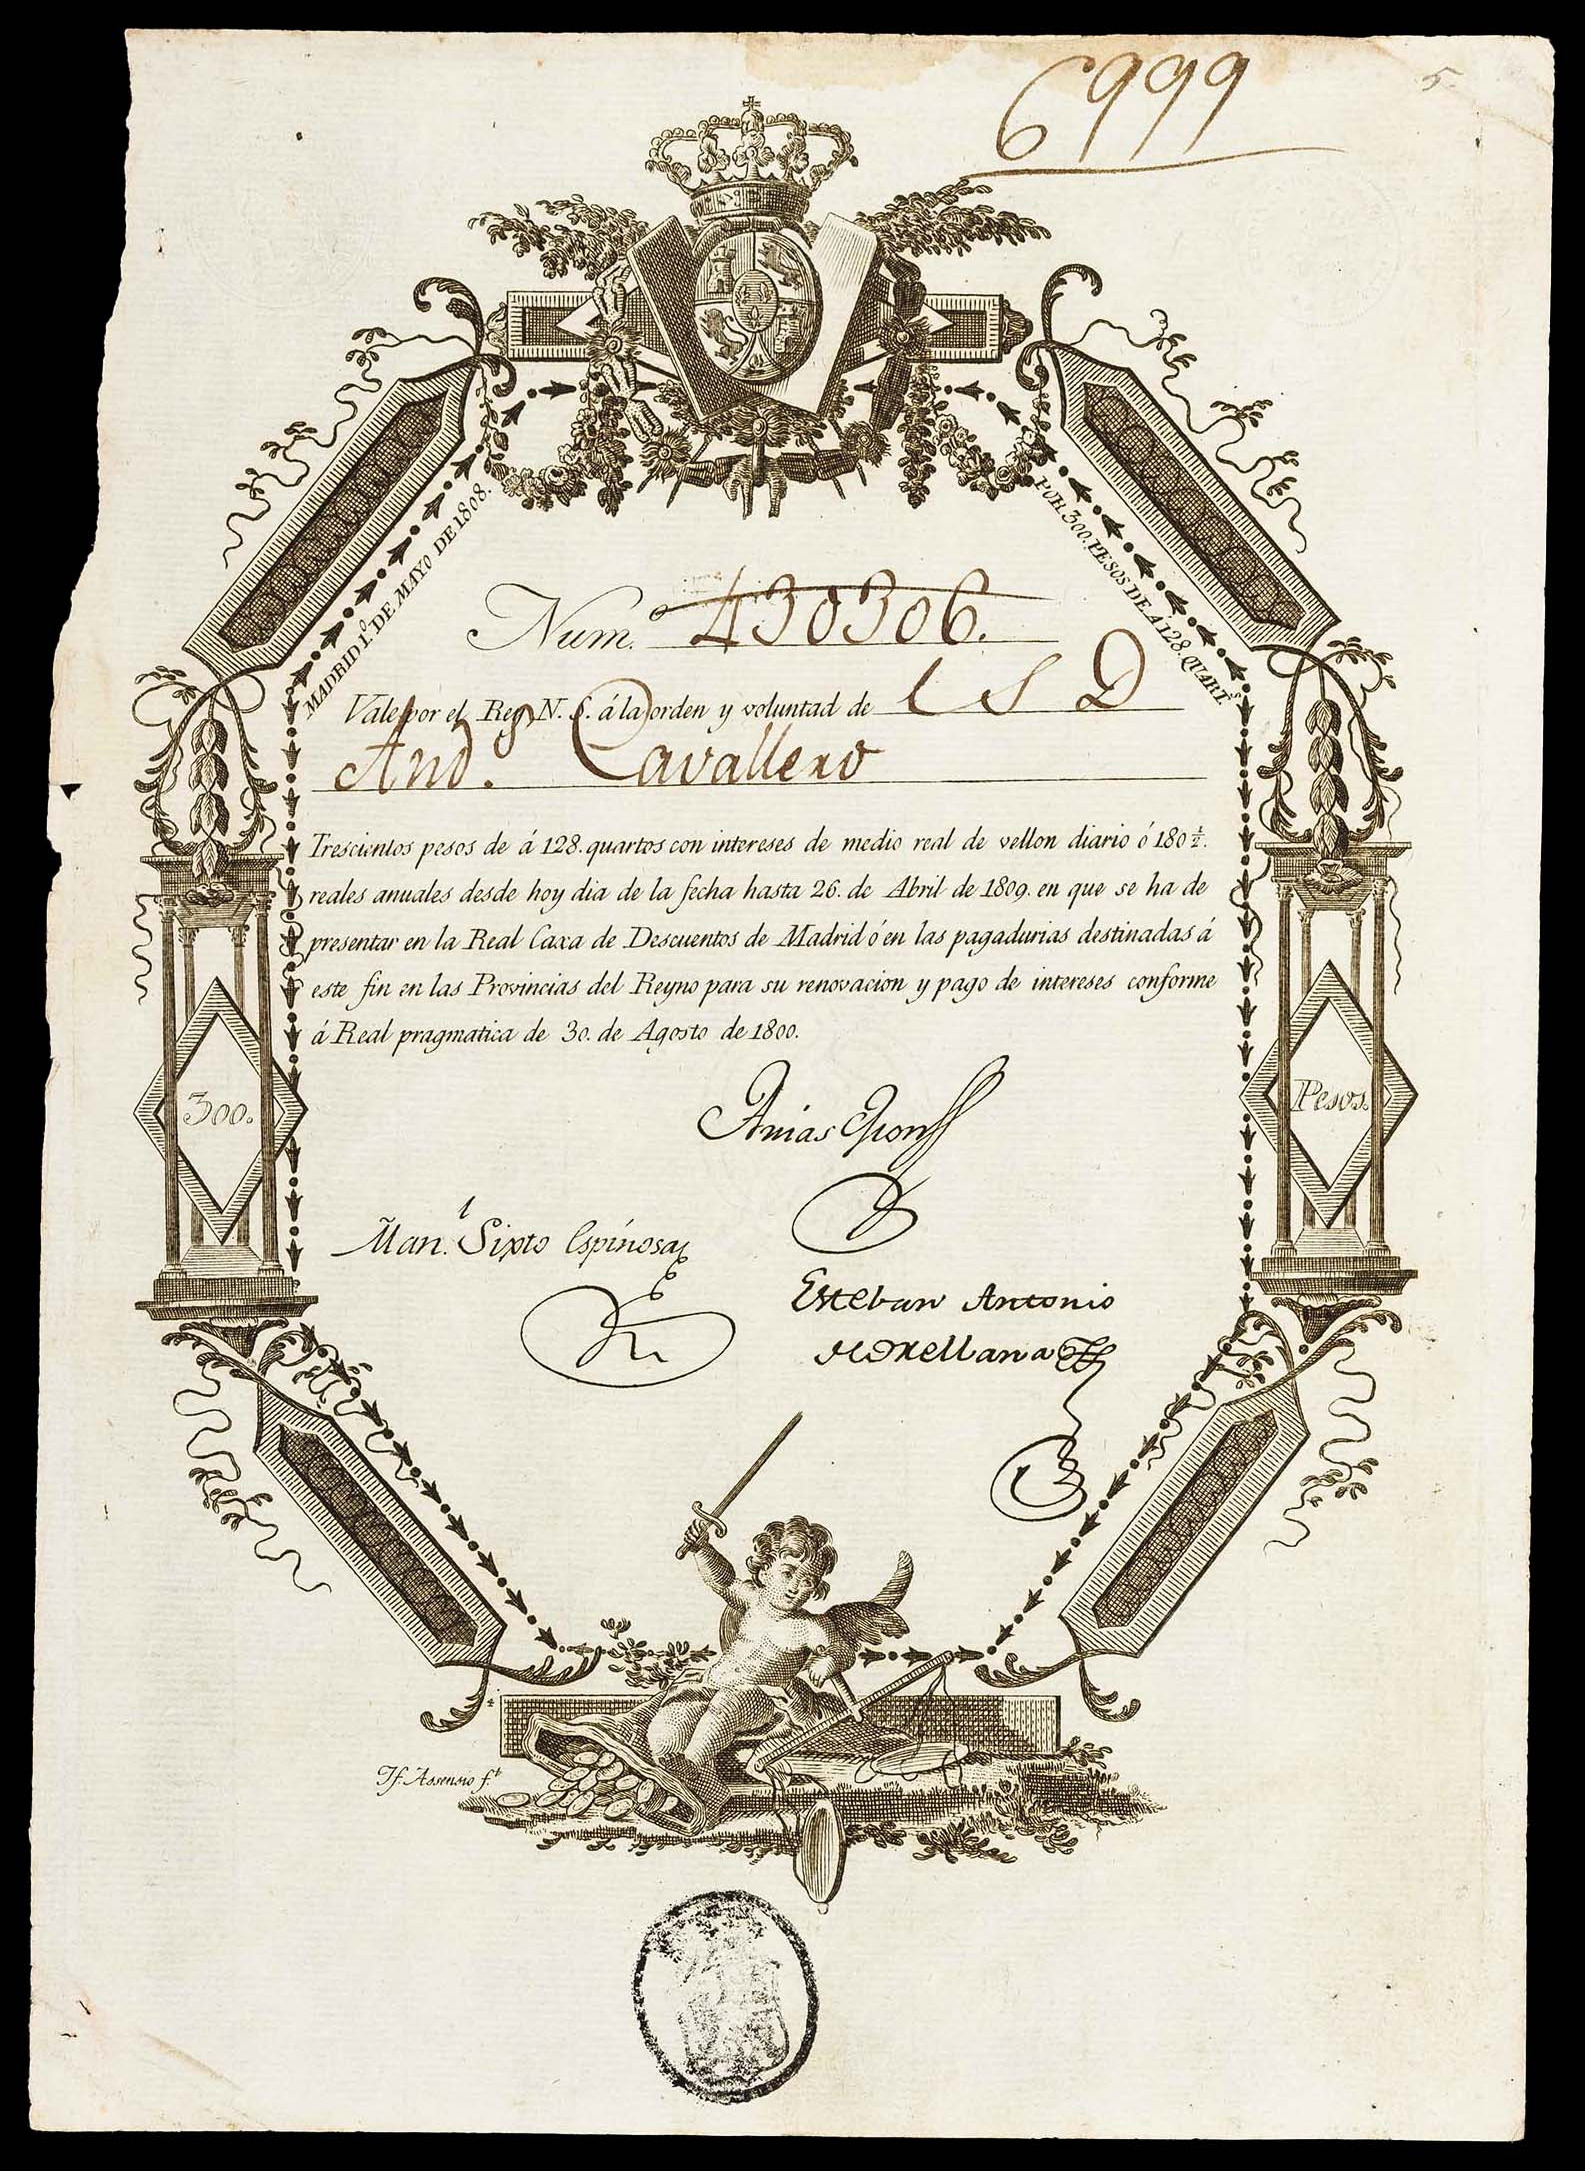 6999
5.
MADRID 1º. DE MAYO DE 1808.
POR 300. PESOS DE Á 128. QUARTS
Num.º 430306.
Vale por el Rey N. S. á la orden y voluntad de
And.º Cavallero
Trescientos pesos de á 128. quartos con intereses de medio real de vellon diario ó 180 ½.
reales anuales desde hoy dia de la fecha hasta 26. de Abril de 1809. en que se ha de
presentar en la Real Caxa de Descuentos de Madrid ó en las pagadurias destinadas á
este fin en las Provincias del Reyno para su renovacion y pago de intereses conforme
á Real pragmatica de 30. de Agosto de 1800.
300.
Pesos.
Arias
Man.l Sixto Espinosa
Esteban Antonio
de Orellana
Jf. Assensio f.t